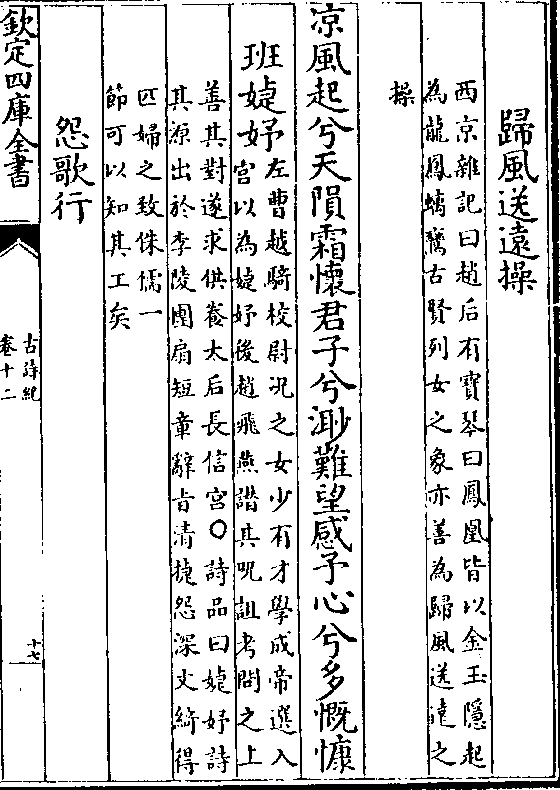 歸風送遠操
西京雜記曰趙后有寶琴曰鳳凰皆以金玉隱起
為龍鳳螭鸞古賢列女之象亦善為歸風送遠之
操
凉風起兮天隕霜懷君子兮渺難望感予心兮多慨慷
班婕妤
左曹越騎校尉况之女少有才學成帝選入
宫以為婕妤後趙飛燕譖其呪詛考問之上
善其對遂求供養太后長信宫○詩品曰婕妤詩
其源出於李陵團扇短章辭旨清捷怨深文綺得
匹婦之致侏儒一
節可以知其工矣
怨歌行
欽定四庫全書
古詩紀
卷十二
十七